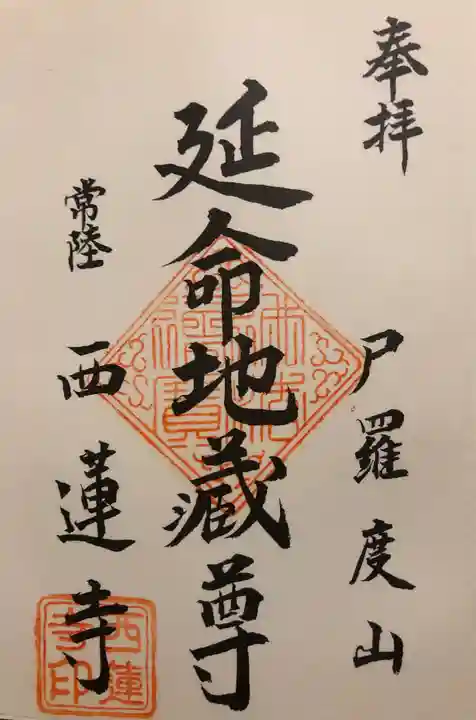 奉拝
尸羅度山
延命地蔵尊
常陸
西蓮寺
西蓮寺印